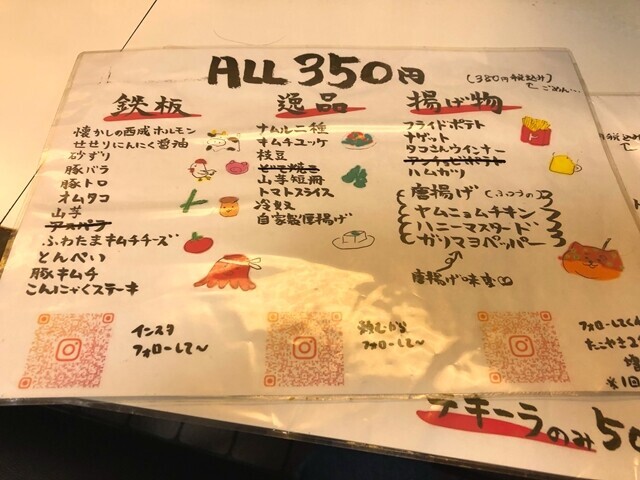 ALL 350円
(380円税込み)
ごめん…
鉄板
懐かしの西成ホルモン
せせりにんにく醤油
砂ずり
豚バラ
豚トロ
オムタコ
山芋
アスパラ
ふわたまキムチチーズ
とんぺい
豚キムチ
こんにゃくステーキ
逸品
ナムル二種
キムチユッケ
枝豆
山芋短冊
トマトスライス
冷奴
自家製厚揚げ
揚げ物
フライドポテト
ナゲット
タコさんウインナー
ハムカツ
唐揚げ(ふつうの)
ヤムニョムチキン
ハニーマスタード
ガリマヨペッパー
唐揚げ味変
インスタ
フォローして〜
フォローして〜
フォローしてく
たこやき
増
※1回
テキーラのみ50
税込み